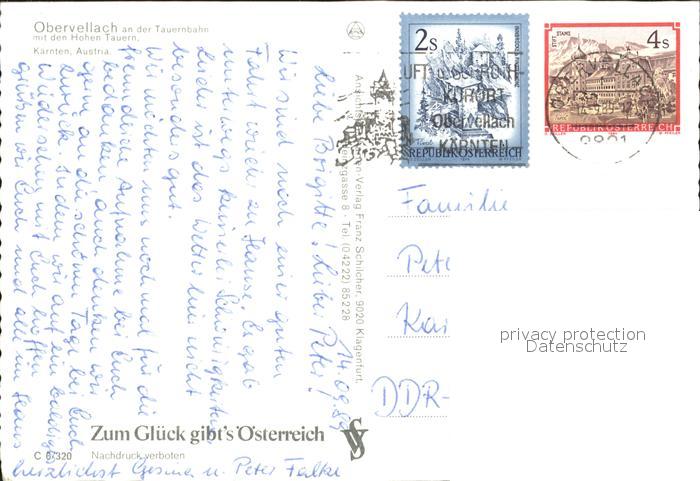 Obervellach an der Tauernbahn
mit den Hohen Tauern,
Kärnten, Austria.
14.09.89
Liebe Brigitte! Lieber Peter!
Wir sind nach einer guten
Fahrt wieder zu Hause. Es gab
unterwegs keinerlei Schwierigkeiten.
Leider ist das Wetter hier nicht
besonders gut.
Wir möchten uns nochmal für die
freundliche Aufnahme bei Euch
bedanken auch denken wir
gern an die schönen Tage bei Euch
zurück. Indem wir auf ein baldiges
Wiedersehen mit Euch hoffen
grüßen wir Euch und all im Haus
herzlichst Gesina u. Peter Falke
Zum Glück gibt's Österreich
C 8/320
Nachdruck verboten
Ansichtskarten-Verlag Franz Schilcher, 9020 Klagenfurt,
gasse 8 · Tel. (04222) 85228
2s
REPUBLIK ÖSTERREICH
LUFT-
KURORT
Obervellach
KÄRNTEN
STIFT STAMS
4s
REPUBLIK ÖSTERREICH
OBERVELLACH
9821
Familie
Pete
Kai
DDR-
privacy protection
Datenschutz